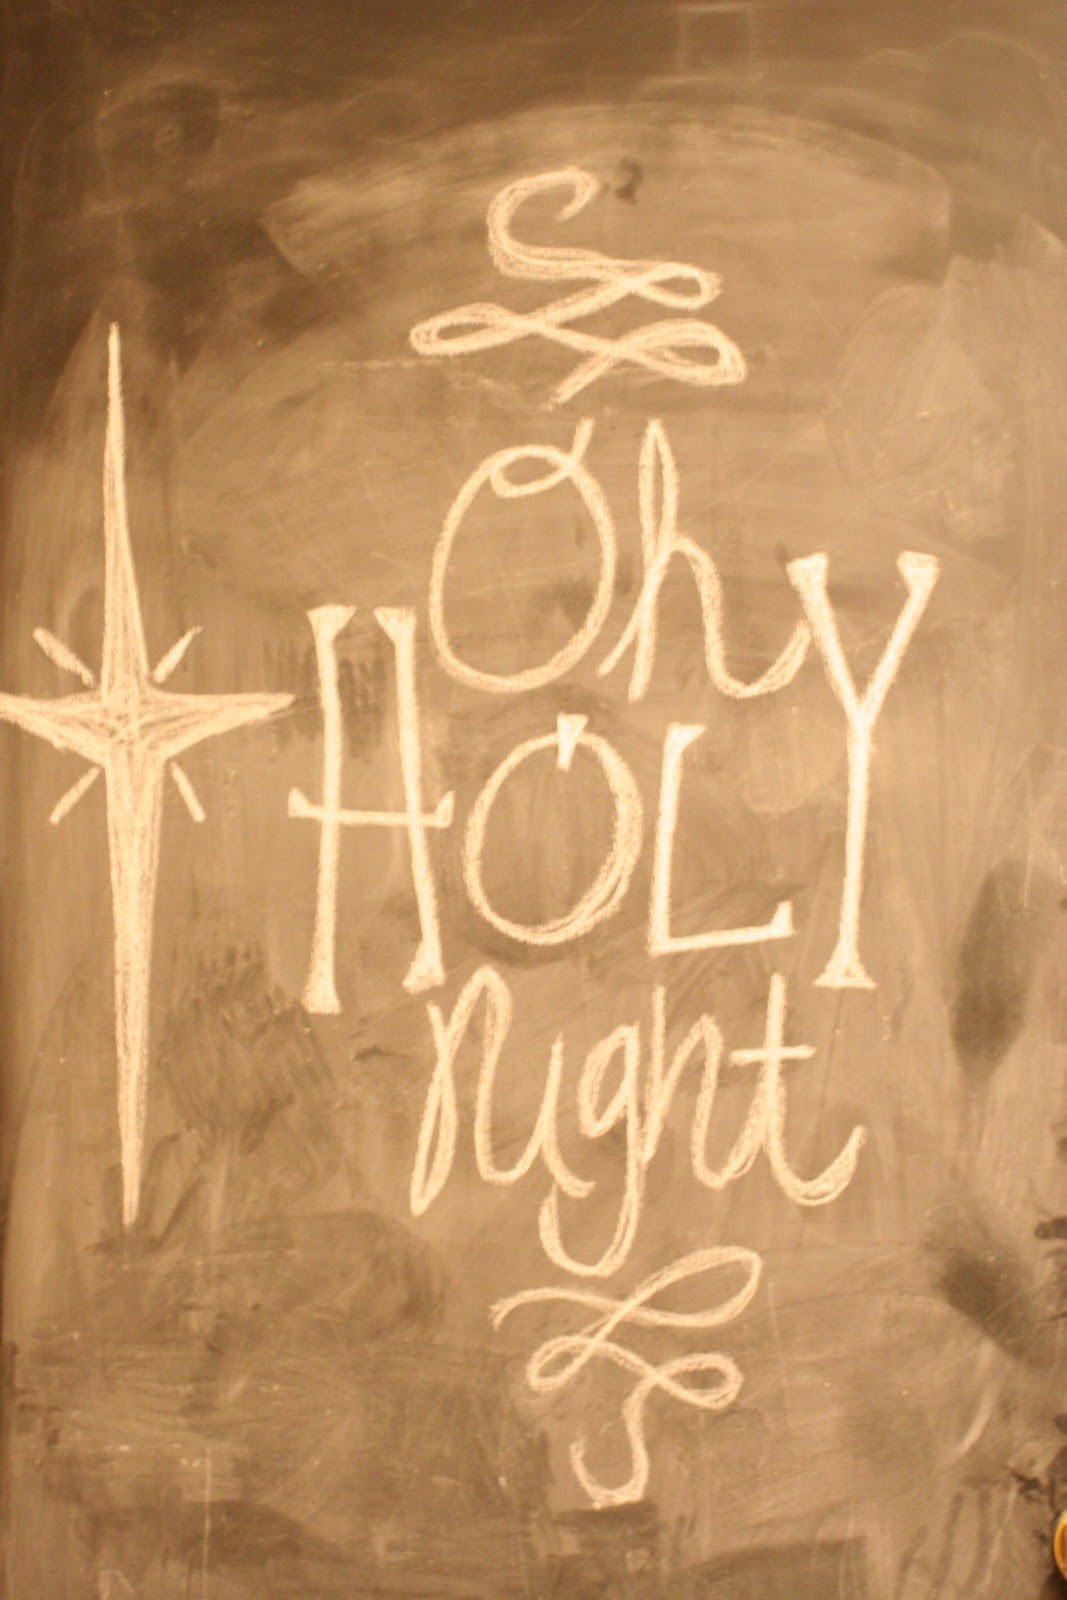 Oh
HOLY
night